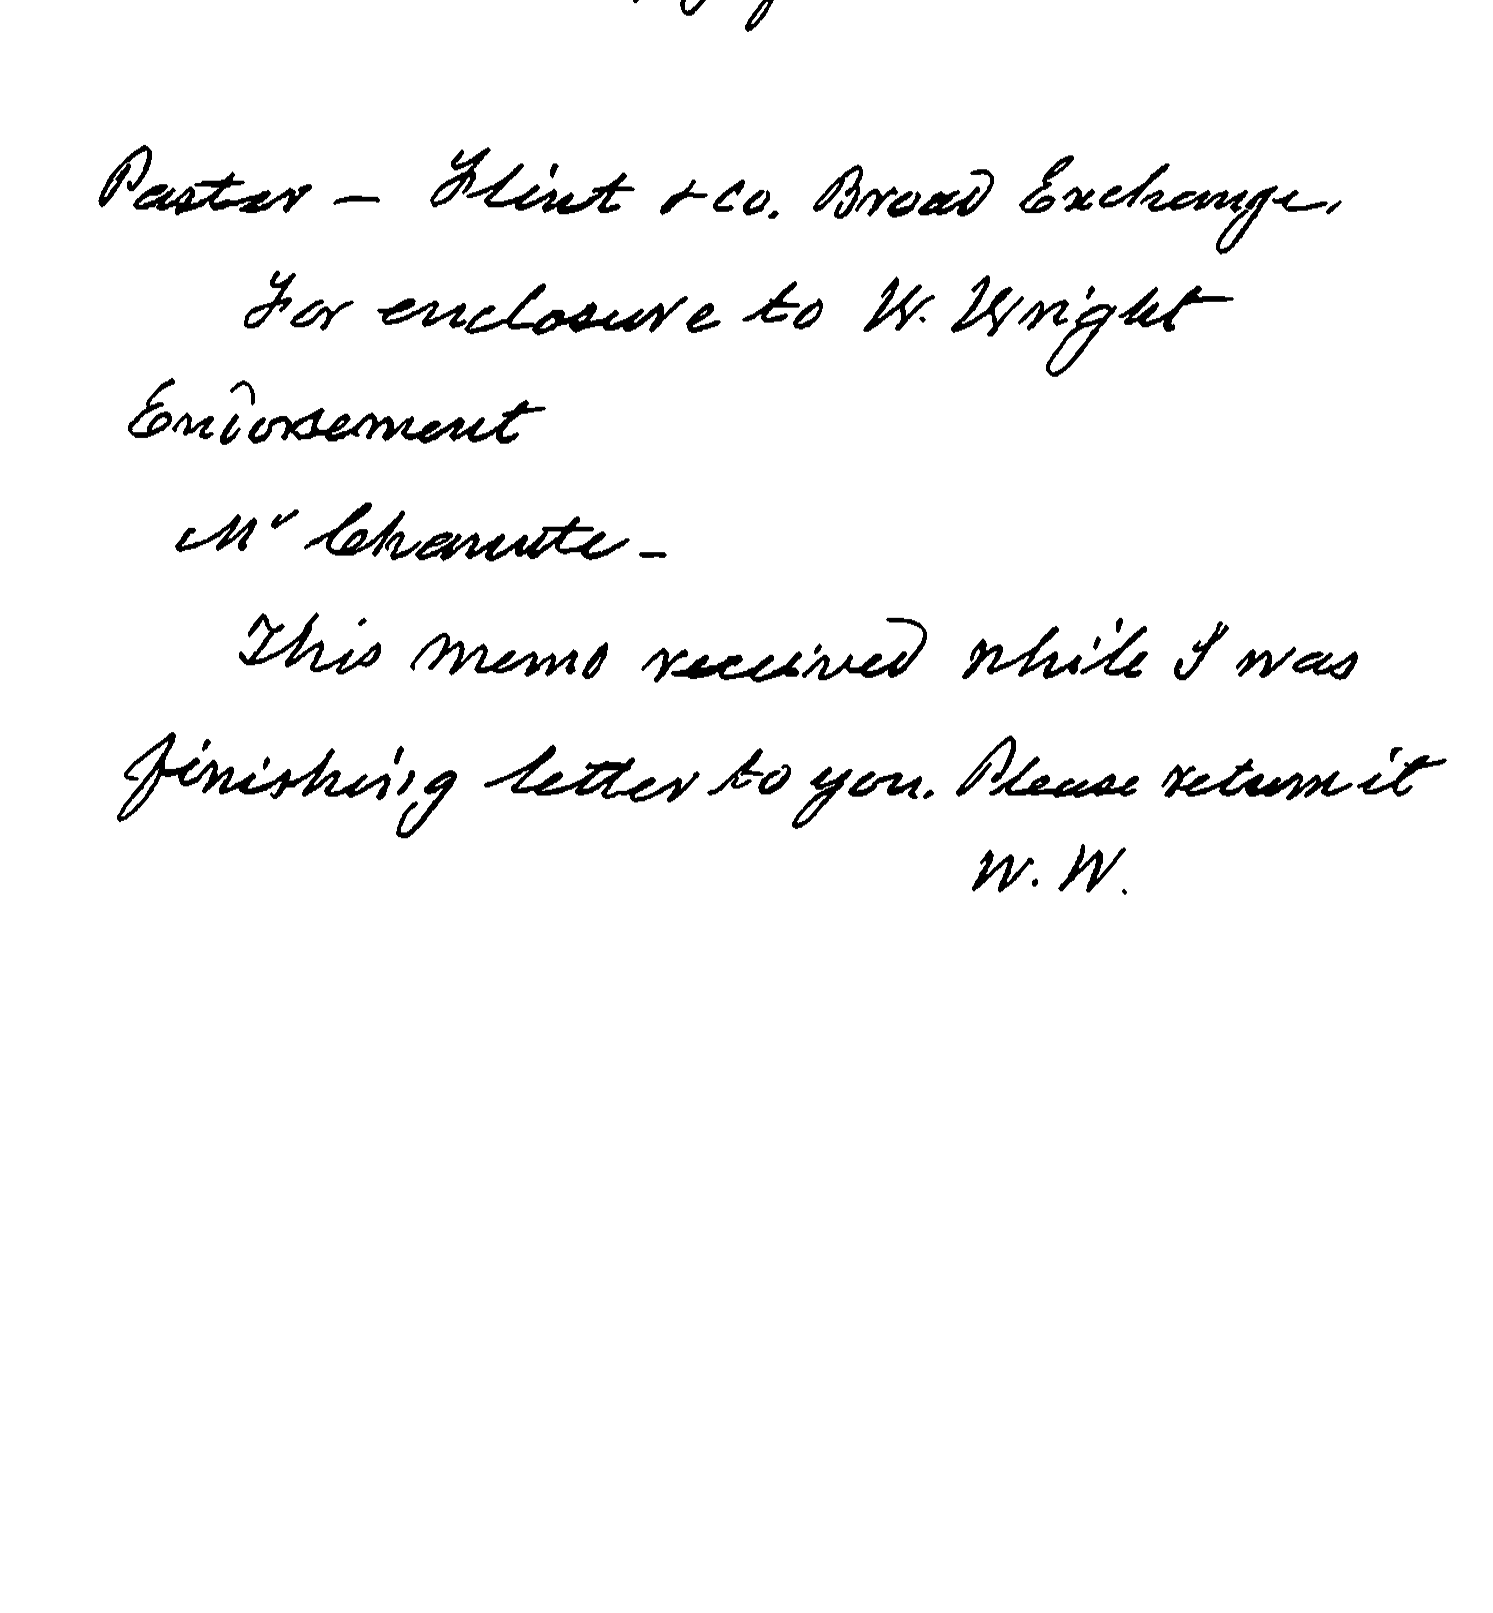 Paster — Flint & Co. Broad Exchange.
For enclosure to W. Wright
Endorsement
Mr Chanute —
This memo received while I was
finishing letter to you. Please return it
W. W.